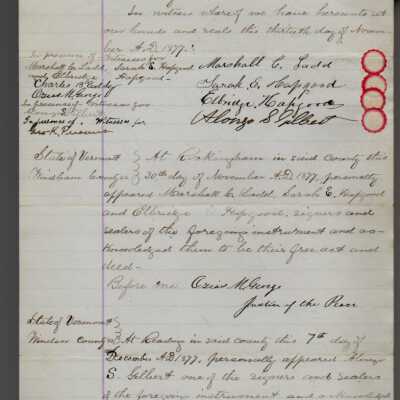 In witness whereof we have hereunto set
our hands and seals this thirtieth day of Novem
ber A.D. 1877.
In presence of Witnesses for
Marshall C. Ladd, Sarah E. Hapgood
and Elbridge Hapgood.
Charles B. Eddy
Ozias M. George
In presence of Witnesses for
Marshall C. Ladd
Sarah E. Hapgood
Elbridge Hapgood
Alonzo S. Gilbert
In presence of. Witness for
Geo. K.
State of Vermont } At Rockingham in said county this
Windham County } 30th day of November A.D. 1877. personally
appeared Marshall C. Ladd, Sarah E. Hapgood
and Elbridge Hapgood, signers and
sealers of the foregoing instrument and ac-
knowledged them to be their free act and
deed -
Before me Ozias M. George
Justice of the Peace
State of Vermont }
Windsor County } At Reading in said county this 7th day of
December A.D. 1877. personally appeared Alonzo
S. Gilbert one of the signers and sealers
of the foregoing instrument and acknowledged